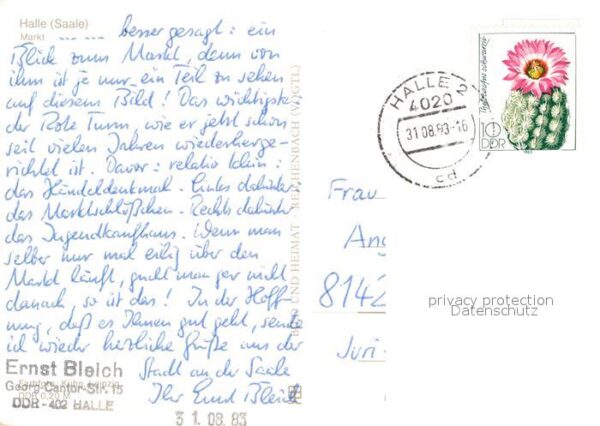 Halle (Saale)
Markt ... ... besser gesagt: ein
Blick zum Markt, denn von
ihm ist ja nur ein Teil zu sehen
auf diesem Bild! Das wichtigste
der Rote Turm, wie er jetzt schon
seit vielen Jahren wiederherge-
richtet ist. Davor: relativ klein:
das Händeldenkmal. Links dahinter
das Marktschlößchen. Rechts dahinter
das Jugendkaufhaus. Wenn man
selber nur mal eilig über den
Markt läuft, guckt man gar nicht
danach, so ist das! In der Hoff-
nung, daß es Ihnen gut geht, sende
ich wieder herzliche Grüße aus der
Stadt an der Saale
Ihr Ernst Bleich
Ernst Bleich
Georg-Cantor-Str. 15
DDR - 402 HALLE
31.08.83
BILD UND HEIMAT · REICHENBACH (VOGTL)
HALLE 2
4020
31.08.83-16
cd
10
DDR
Frau
Ang
8142
Juri-
privacy protection
Datenschutz